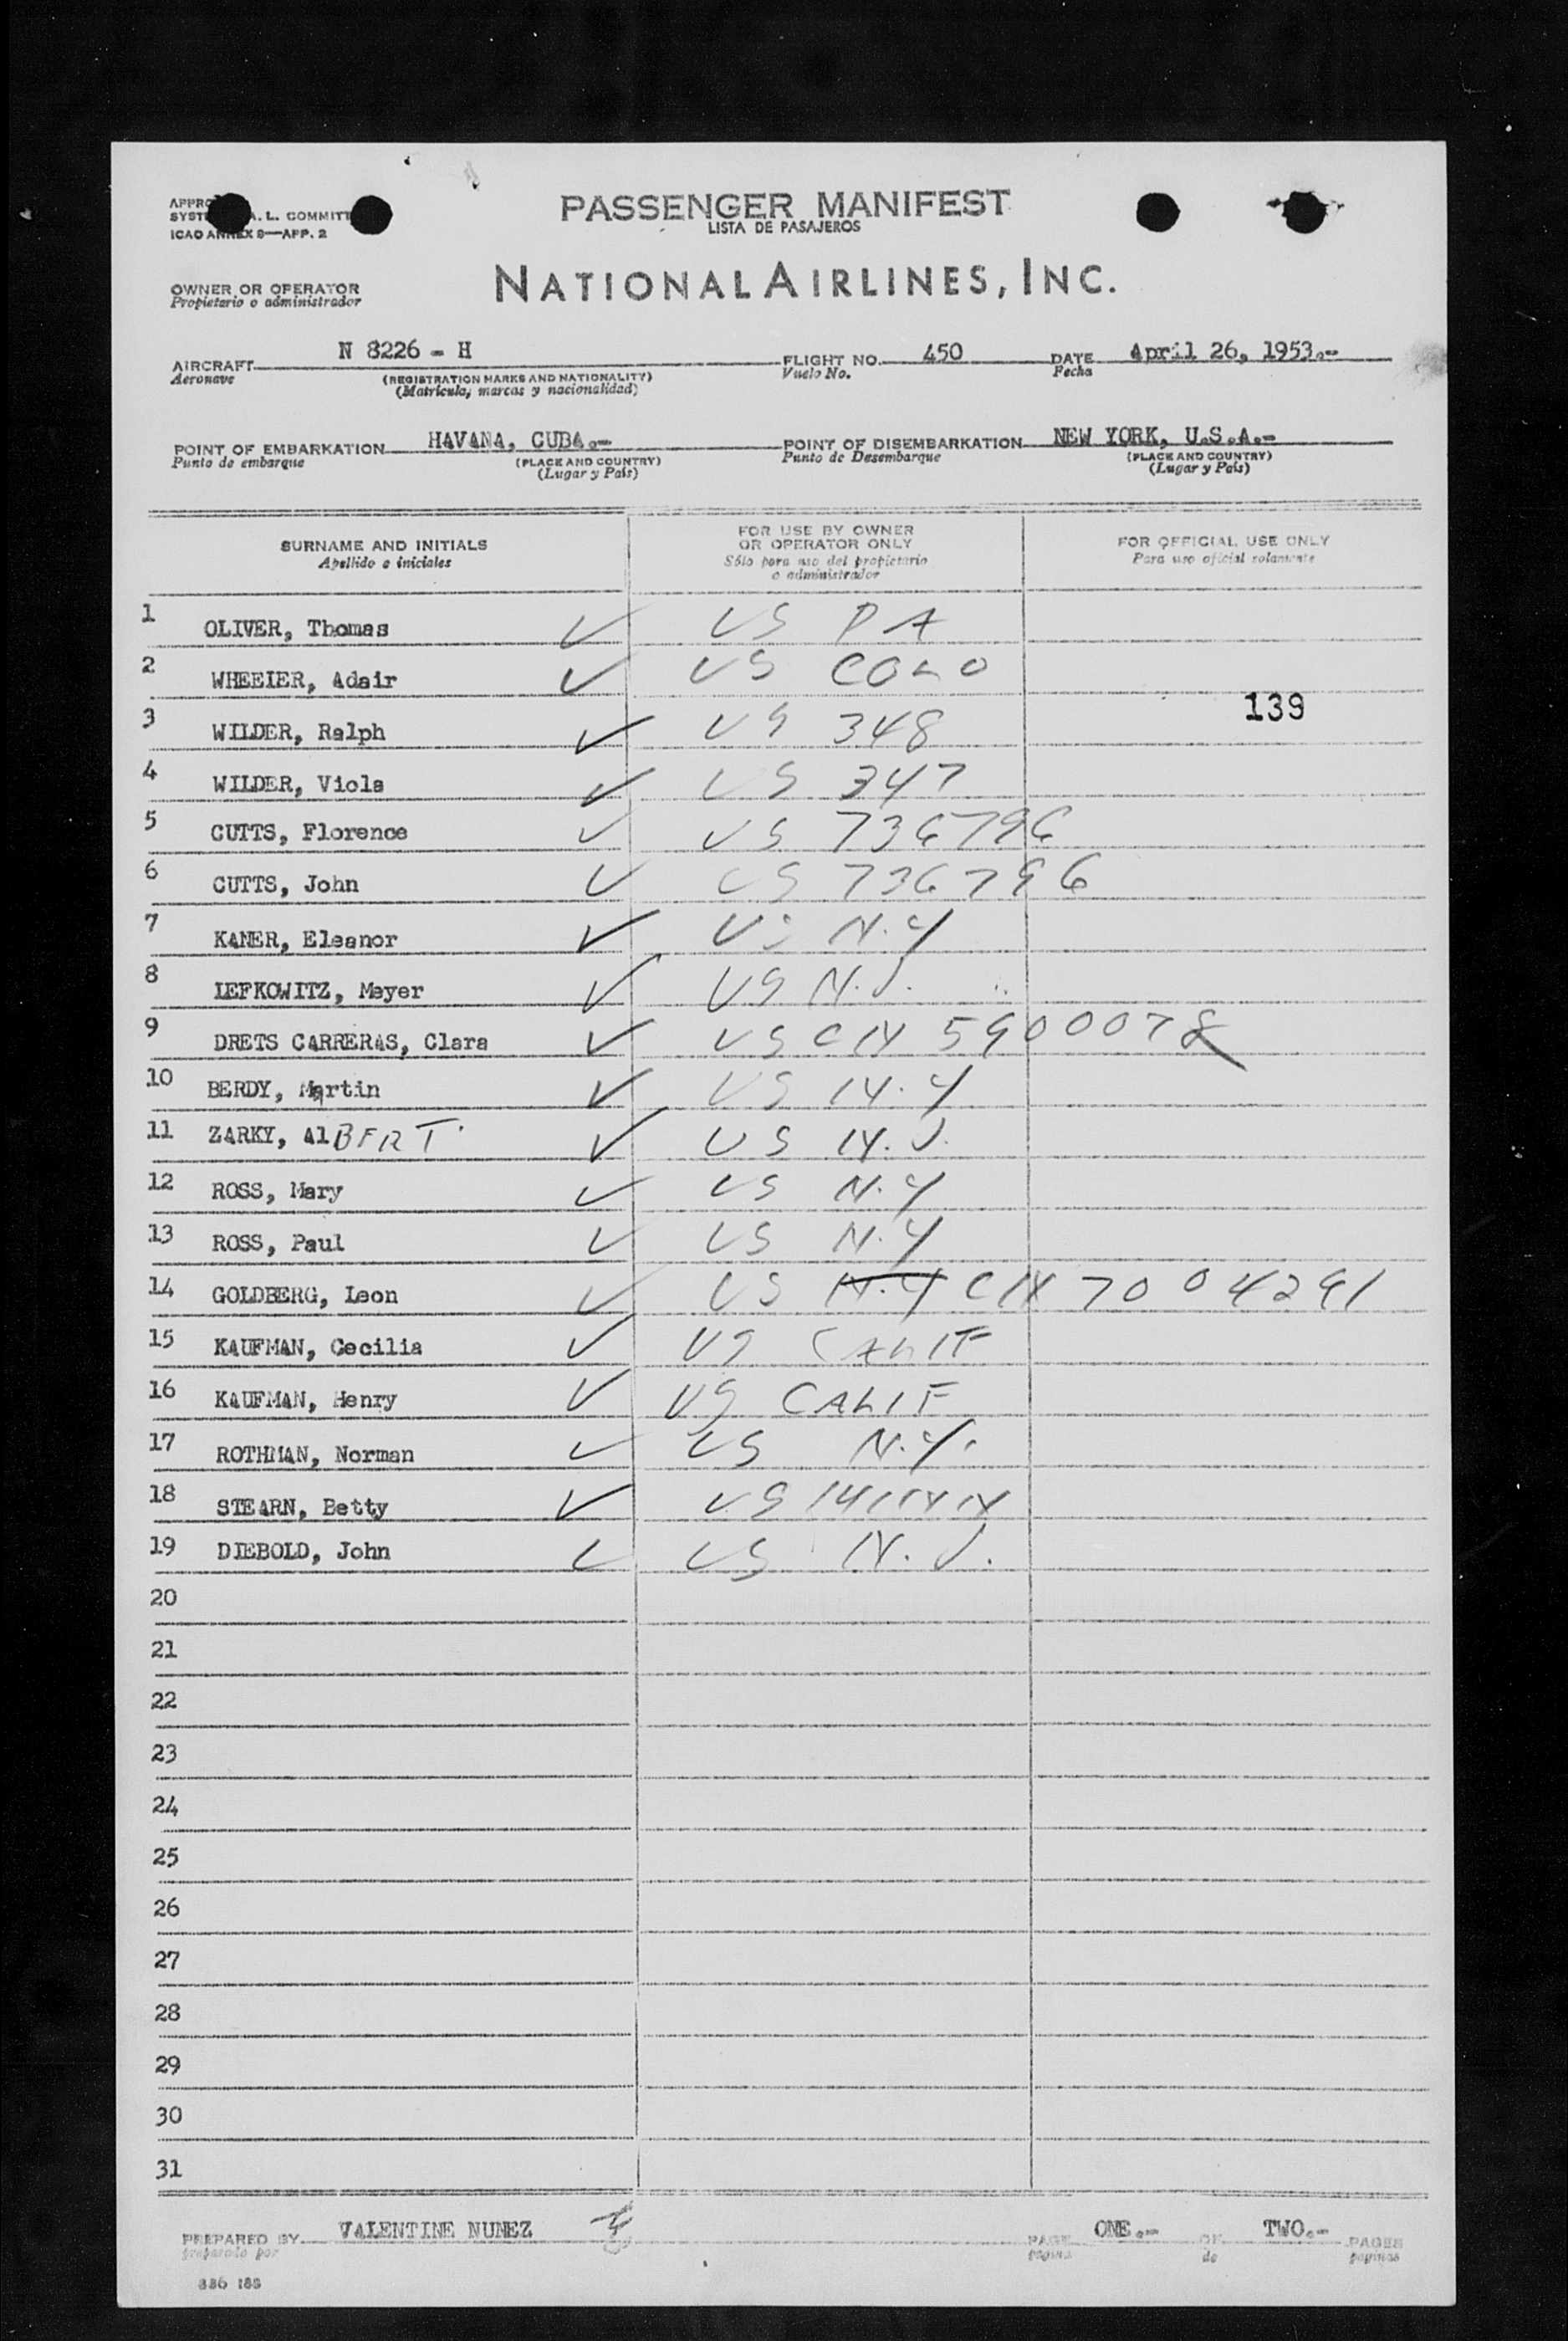 APPRO
SYST A. L. COMMITT
ICAO ANNEX 9—APP. 2
PASSENGER MANIFEST
LISTA DE PASAJEROS
OWNER OR OPERATOR
Propietario o administrador
NATIONAL AIRLINES, INC.
AIRCRAFT N 8226 - H FLIGHT NO. 450 DATE April 26, 1953.-
Aeronave (REGISTRATION MARKS AND NATIONALITY) Vuelo No. Fecha
(Matrícula, marcas y nacionalidad)
POINT OF EMBARKATION HAVANA, CUBA.- POINT OF DISEMBARKATION NEW YORK, U.S.A.-
Punto de embarque (PLACE AND COUNTRY) Punto de Desembarque (PLACE AND COUNTRY)
(Lugar y País) (Lugar y País)
SURNAME AND INITIALS
Apellido e iniciales
FOR USE BY OWNER
OR OPERATOR ONLY
Sólo para uso del propietario
o administrador
FOR OFFICIAL USE ONLY
Para uso oficial solamente
1 OLIVER, Thomas ✓ US PA
2 WHEEIER, Adair ✓ US COLO
139
3 WILDER, Ralph ✓ US 348
4 WILDER, Viola ✓ US 347
5 CUTTS, Florence ✓ US 736796
6 CUTTS, John ✓ US 736796
7 KANER, Eleanor ✓ US N.Y
8 LEFKOWITZ, Meyer ✓ US N.J.
9 DRETS CARRERAS, Clara ✓ US CIN 5900078
10 BERDY, Martin ✓ US N.Y
11 ZARKY, AlBERT ✓ US N.J.
12 ROSS, Mary ✓ US N.Y
13 ROSS, Paul ✓ US N.Y
14 GOLDBERG, Leon ✓ US N.Y CIN 7004291
15 KAUFMAN, Cecilia ✓ US CALIF
16 KAUFMAN, Henry ✓ US CALIF
17 ROTHMAN, Norman ✓ US N.Y.
18 STEARN, Betty ✓ US
19 DIEBOLD, John ✓ US N.J.
20
21
22
23
24
25
26
27
28
29
30
31
PREPARED BY VALENTINE NUNEZ PAGE ONE.- OF TWO.- PAGES
preparado por página de páginas
336 188